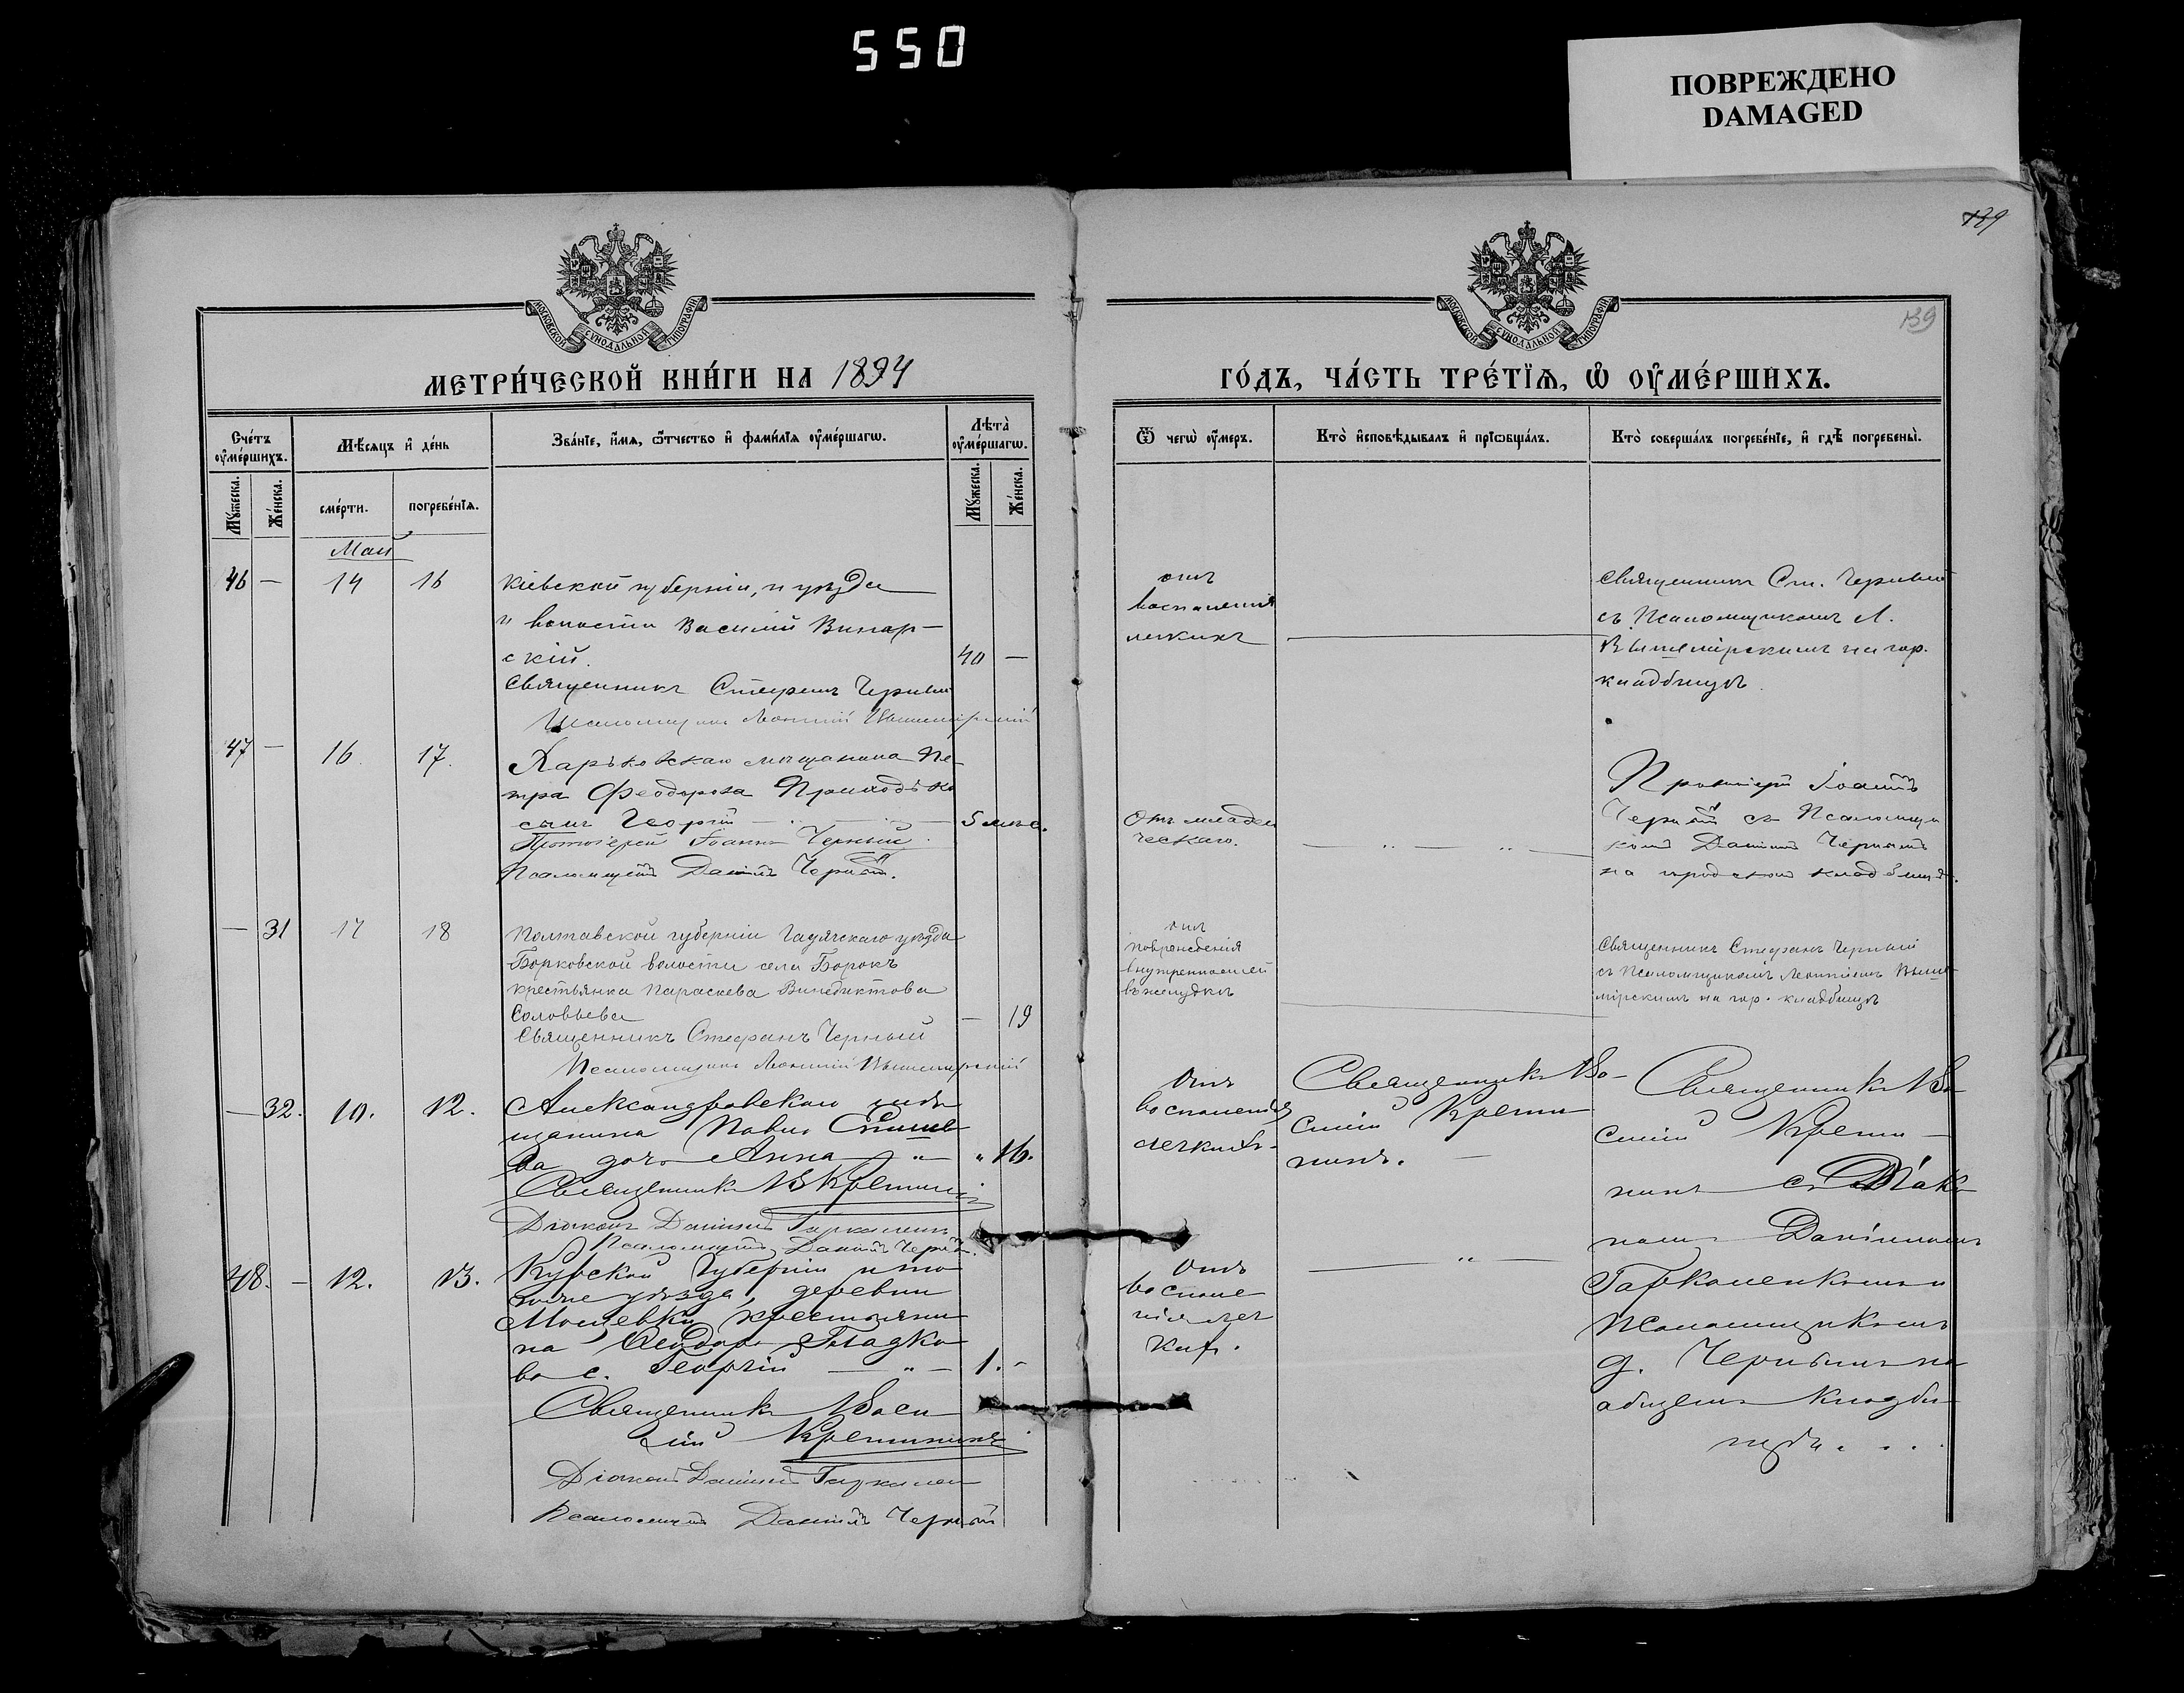 550
ПОВРЕЖДЕНО
DAMAGED
139
139
МОСКОВСКОЙ СѴНОДАЛЬНОЙ ТИПОГРАФІИ
МОСКОВСКОЙ СѴНОДАЛЬНОЙ ТИПОГРАФІИ
МЕТРИ́ЧЕСКОЙ КНИ́ГИ НА 1894
ГО́ДЪ, ЧА́СТЬ ТРЕ́ТІѦ, Ѡ҆ ОУ҆МЕ́РШИХЪ.
Сче́тъ оу҆ме́ршихъ.
Мꙋ́жеска.
Же́нска.
Мѣ́сѧцъ и҆ де́нь
сме́рти.
погребе́нїѧ.
Зва́нїе, и҆́мѧ, ѻ҆́тчество и҆ фамилїѧ оу҆ме́ршагѡ.
Лѣ́та оу҆ме́ршагѡ.
Мꙋ́жеска.
Же́нска.
Ѿ чегѡ̀ оу҆́меръ.
Кто̀ и҆сповѣ́дывалъ и҆ прїѡбща́лъ.
Кто̀ соверша́лъ погребе́нїе, и҆ гдѣ̀ погребены̀.
Май
46 — 14 16
Кіевской губерніи, и уѣзда
и волости Василій Винар-
скій. 40 —
Священникъ Стефанъ Черный
Псаломщикъ Леонтій Вышемірскій
отъ
воспаленія
легкихъ
Священникъ Ст. Черный
съ Псаломщикомъ Л.
Вышемірскимъ на гор.
кладбищѣ.
47 — 16. 17.
Харьковскаго мѣщанина Пе-
тра Феодорова Приходько
сынъ Георгій — 5 мѣс.
Протоіерей Іоаннъ Черный
Псаломщикъ Даніилъ Черный.
Отъ младен
ческаго.
Протоіерей Іоаннъ
Черный съ Псаломщи
комъ Даніиломъ Чернымъ
на городскомъ кладбищѣ.
— 31 17 18
Полтавской губерніи Гадячскаго уѣзда
Борковской волости села Борокъ
крестьянка Параскева Венедиктова
Соловьева — 19
Священникъ Стефанъ Черный
Псаломщикъ Леонтій Вышемірскій
отъ
поврежденія
внутренностей
въ желудкѣ
Священникъ Стефанъ Черный
съ Псаломщикомъ Леонтіемъ Выше-
мірскимъ на гор. кладбищѣ
— 32. 10. 12.
Александровскаго мѣ
щанина Павла
ва дочь Анна — " 16.
Священникъ В Крепинин
Діаконъ Даніилъ Гаркаленк
Псаломщикъ Даніилъ Черный.
Отъ
воспаленія
легкихъ.
Священникъ Ва-
силій Крепи
нинъ. —
Священникъ Ва
силій Крепи-
нинъ съ Діако
номъ Даніиломъ
Гаркаленкомъ и
Псаломщикомъ
Д. Чернымъ на
общемъ кладби
щѣ. . . .
48. — 12. 13.
Курской губерніи и того
же уѣзда, деревни
крестьяни
на Ѳеодора Гладко
ва с. Георгій — " — 1. -
Священникъ Васи
лій Крепининъ
Діаконъ Даніилъ Гаркален
Псаломщикъ Даніилъ Черный
Отъ
воспале
нія лег
кихъ.